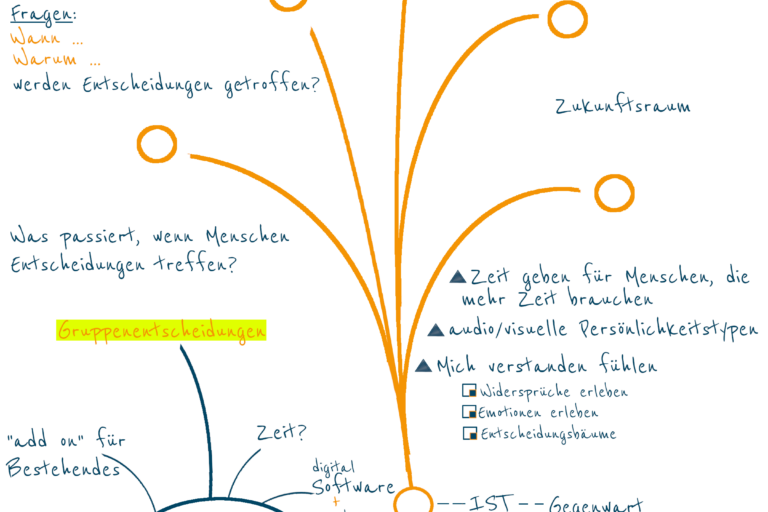 Fragen:
Wann ...
Warum ...
werden Entscheidungen getroffen?
Zukunftsraum
Was passiert, wenn Menschen
Entscheidungen treffen?
Zeit geben für Menschen, die
mehr Zeit brauchen
audio/visuelle Persönlichkeitstypen
Mich verstanden fühlen
Widersprüche erleben
Emotionen erleben
Entscheidungsbäume
Gruppenentscheidungen
"add on" für
Bestehendes
Zeit?
digital
Software
+
--IST--Gegenwart